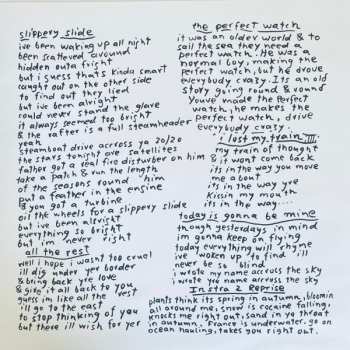 slippery slide
ive been waking up all night
been scattered around
hidden outa fright
but i guess thats kinda smart
caught out on the other side
to find out they lied
but ive been alright
could never stand the glare
it always seemed too bright
& the rafter is a full steamheader
yeah
steamboat drive across ya 20/20
the stars tonight are satellites
father got a real fire disturber on him
take a path & run the length
of the seasons round him
put a feather in the engine
& you got a turbine
oil the wheels for a slippery slide
but ive been allright
everything so bright
but im never right
all the rest
well i hope i wasnt too cruel
ill dig under yer border
& bring back yre love
& give it all back to you
guess im like all the rest
ill go to the east
to stop thinking of you
but there ill wish for yer
the perfect watch
it was an older world & to
sail the sea they need a
perfect watch. He was a
normal boy, making the
perfect watch, but he drove
everybody crazy. Its an old
story going round & round
youve made the perfect
watch, he makes the
perfect watch, drive
everybody crazy.
i lost my train III
my train of thought
& it wont come back
its in the way you move
me about
its in the way yre
kissin my mouth
its in the way....
today is gonna be mine
though yesterdays in mind
im gonna keep on flying
today everything will rhyme
ive woken up to find ill
never be so blind
i wrote my name accross the sky
i wrote yre name accross the sky
Instra 2 Reprise
plants think its spring in autumn, bloomin
all around me, snow is cocaine falling,
knocks me right out, sand in yo throat
in autumn, France is underwater, go on
ocean hauling, takes you right out.